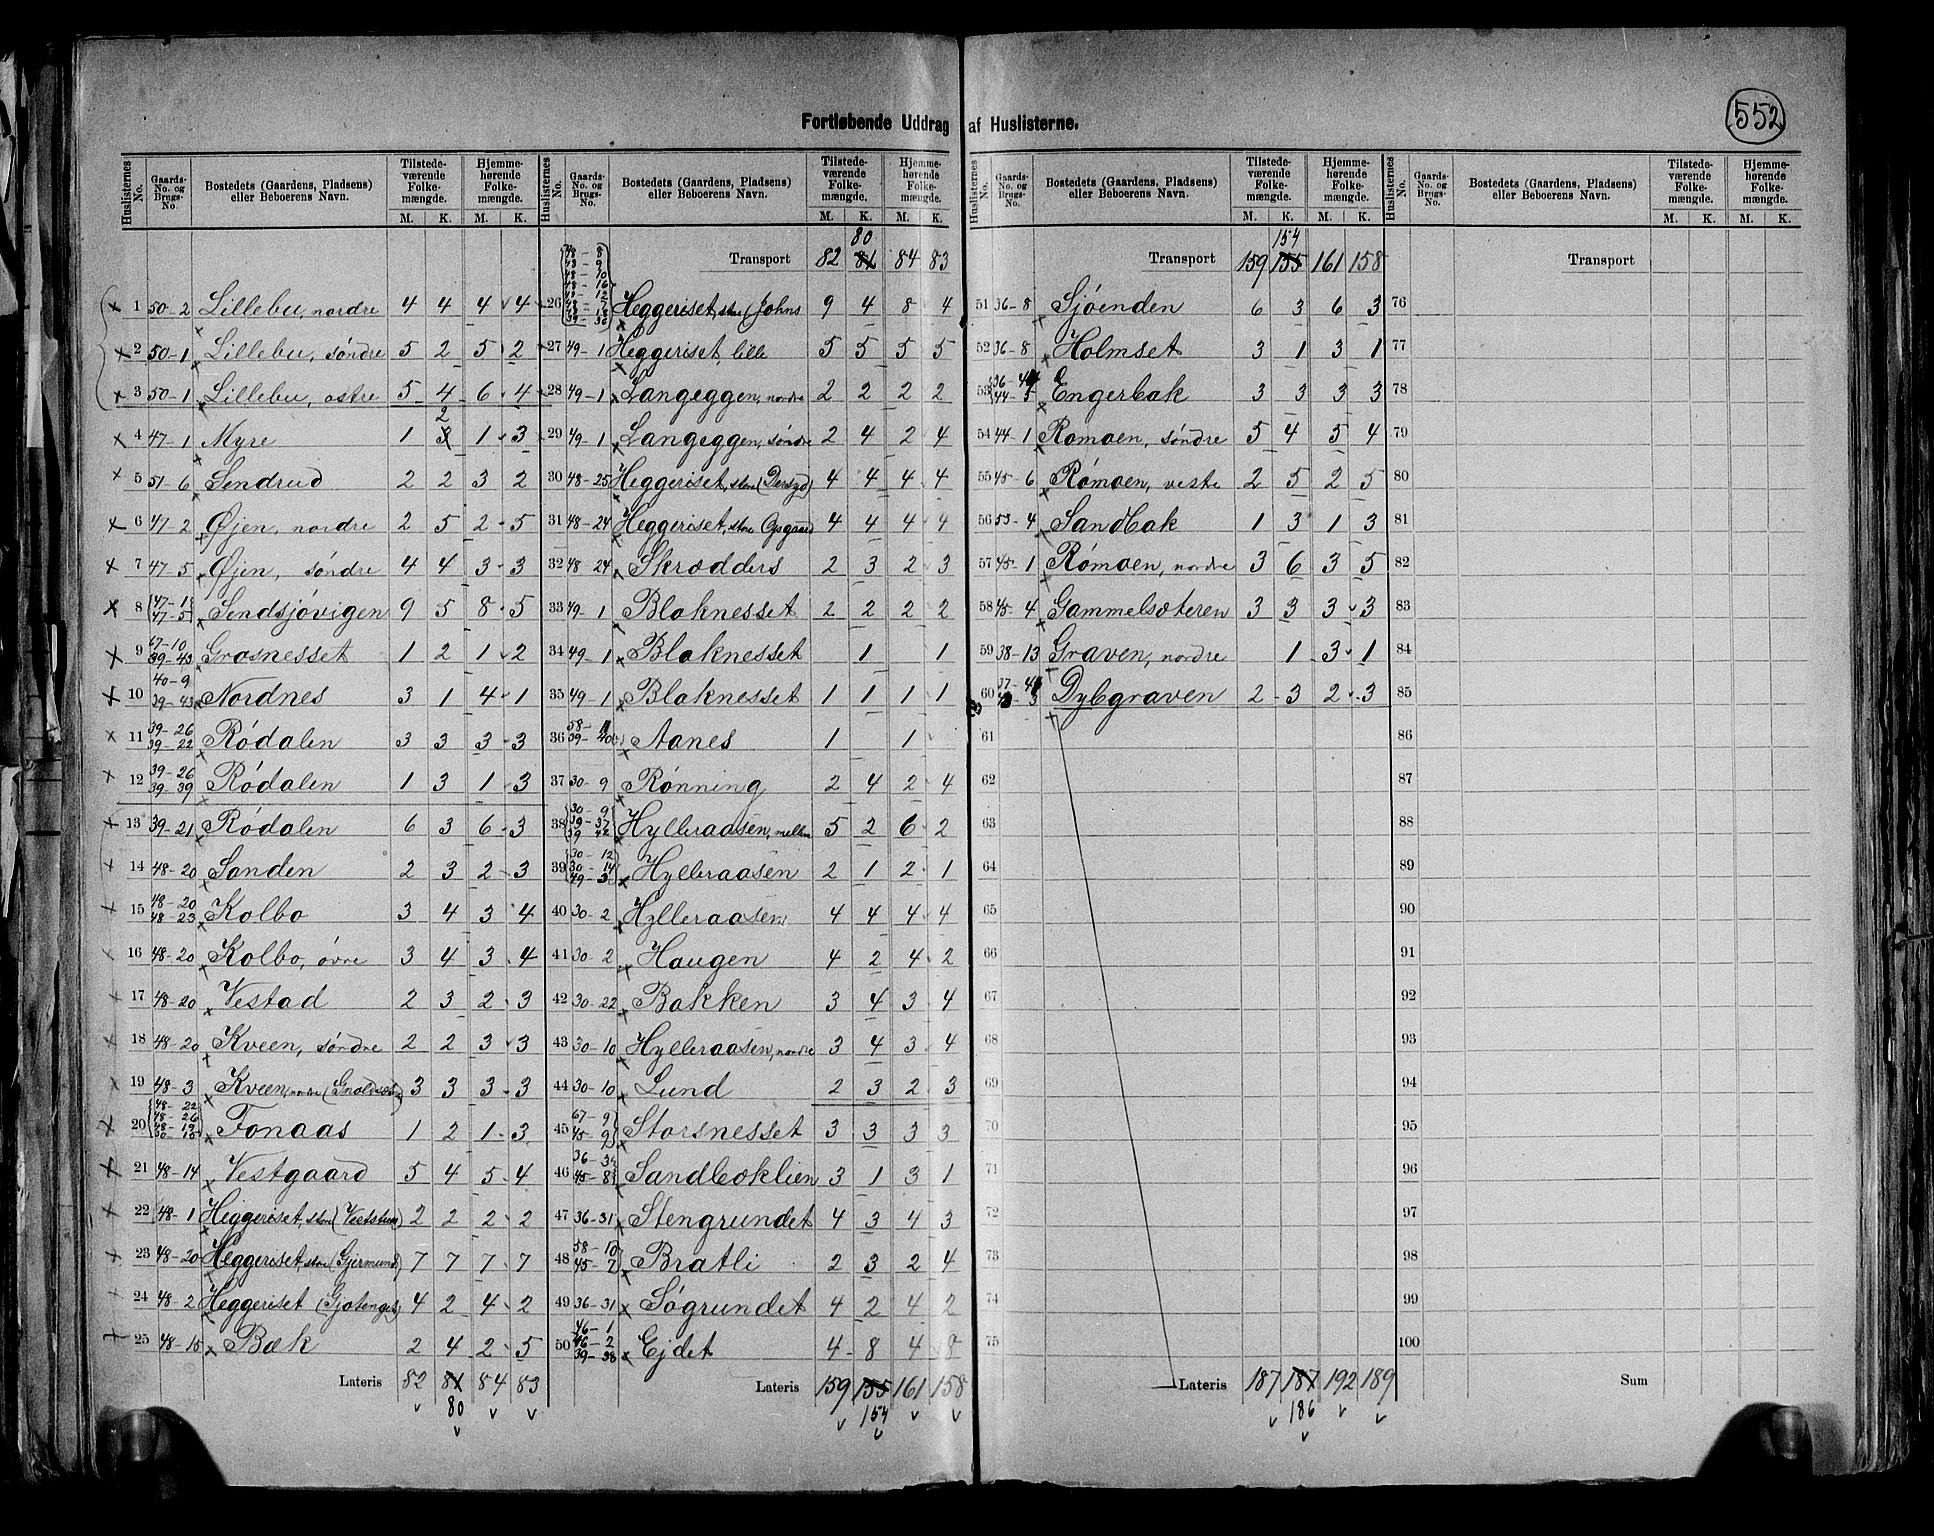 552
Fortløbende Uddrag af Huslisterne.
Huslisternes No. Gaards-No. og Brugs-No. Bostedets (Gaardens, Pladsens) eller Beboerens Navn. Tilstede-værende Folke-mængde. M. K. Hjemme-hørende Folke-mængde. M. K.
1 50-2 Lillebu, nordre 4 4 4 4
2 50-1 Lillebu, söndre 5 2 5 2
3 50-1 Lillebu, østre 5 4 6 4
4 47-1 Myre 1 3 2 1 3
5 51-6 Sendrud 2 2 3 2
6 47-2 Øjen, nordre 2 5 2 5
7 47-5 Øjen, söndre 4 4 3 3
8 47-1 47-5 Sendsjövigen 9 5 8 5
9 67-10 39-43 Græsnesset 1 2 1 2
10 40-9 39-43 Nordnes 3 1 4 1
11 39-26 39-22 Rödalen 3 3 3 3
12 39-26 39-39 Rödalen 1 3 1 3
13 39-21 Rödalen 6 3 6 3
14 48-20 Sanden 2 3 2 3
15 48-20 48-23 Kolbo 3 4 3 4
16 48-20 Kolbo, övre 3 4 3 4
17 48-20 Vestad 2 3 2 3
18 48-20 Kveen, söndre 2 2 3 3
19 48-3 Kveen, nordre 3 3 3 3
20 48-22 48-26 48-19 50-15 Fonaas 1 2 1 3
21 48-14 Vestgaard 5 4 5 4
22 48-1 Heggeriset, store 2 2 2 2
23 48-20 Heggeriset, store (Gjermund) 7 7 7 7
24 48-2 Heggeriset 4 2 4 2
25 48-15 Bæk 2 4 2 5
Lateris 82 81 80 84 83
Huslisternes No. Gaards-No. og Brugs-No. Bostedets (Gaardens, Pladsens) eller Beboerens Navn. Tilstede-værende Folke-mængde. M. K. Hjemme-hørende Folke-mængde. M. K.
Transport 82 81 80 84 83
26 Heggeriset, store (Johns 9 4 8 4
27 49-1 Heggeriset, lille 5 5 5 5
28 49-1 Langeggen, nordre 2 2 2 2
29 49-1 Langeggen, söndre 2 4 2 4
30 48-25 Heggeriset, store 4 4 4 4
31 48-24 Heggeriset, store Opgaard 4 4 4 4
32 48-24 Skrædders 2 3 2 3
33 49-1 Blaknesset 2 2 2 2
34 49-1 Blaknesset 1 1
35 49-1 Blaknesset 1 1 1 1
36 Aanes 1 1
37 30-9 Rønning 2 4 2 4
38 30-9 39-37 39-42 Hylleraasen, mellem 5 2 6 2
39 30-12 30-14 Hylleraasen 2 1 2 1
40 30-2 Hylleraasen 4 4 4 4
41 30-2 Haugen 4 2 4 2
42 30-22 Bakken 3 4 3 4
43 30-10 Hylleraasen, nordre 3 4 3 4
44 30-10 Lund 2 3 2 3
45 67-9 45-9 Storsnesset 3 3 3 3
46 36-3 45-8 Sandbæklien 3 1 3 1
47 36-31 Stengrundet 4 3 4 3
48 58-10 45-7 Bratli 2 3 2 4
49 36-31 Søgrundet 4 2 4 2
50 46-1 46-2 39-38 Ejdet 4 8 4 8
Lateris 159 155 154 161 158
Huslisternes No. Gaards-No. og Brugs-No. Bostedets (Gaardens, Pladsens) eller Beboerens Navn. Tilstede-værende Folke-mængde. M. K. Hjemme-hørende Folke-mængde. M. K.
Transport 159 155 154 161 158
51 36-8 Sjöenden 6 3 6 3
52 36-8 Holmset 3 1 3 1
53 Engerbak 3 3 3 3
54 44-1 Romoen, söndre 5 4 5 4
55 45-6 Rømoen, vestre 2 5 2 5
56 53-4 Sandbak 1 3 1 3
57 45-1 Rømoen, nordre 3 6 3 5
58 45-4 Gammelsæteren 3 3 3 3
59 38-13 Graven, nordre 1 3 1
60 Dybgraven 2 3 2 3
61
62
63
64
65
66
67
68
69
70
71
72
73
74
75
Lateris 187 187 186 192 189
Huslisternes No. Gaards-No. og Brugs-No. Bostedets (Gaardens, Pladsens) eller Beboerens Navn. Tilstede-værende Folke-mængde. M. K. Hjemme-hørende Folke-mængde. M. K.
Transport
76
77
78
79
80
81
82
83
84
85
86
87
88
89
90
91
92
93
94
95
96
97
98
99
100
Sum